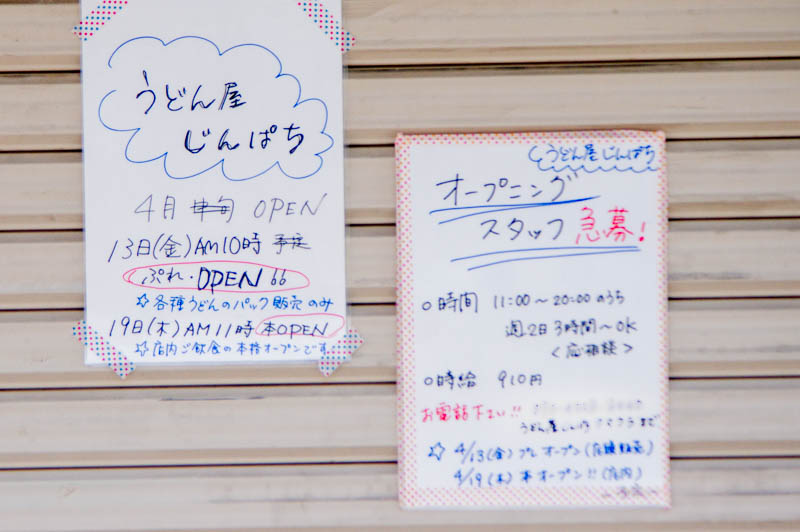 うどん屋
じんぱち
4月 中旬 OPEN
13日(金)AM10時 予定
ぷれ・OPEN
☆各種うどんのパック販売のみ
19日(木)AM11時 本OPEN
☆店内ご飲食の本格オープンです
うどん屋じんぱち
オープニング
スタッフ 急募!
○時間 11:00〜20:00のうち
週2日3時間〜OK
<応相談>
○時給 910円
お電話下さい!!
うどん屋じんぱち まで
☆ 4/13(金)プレオープン(店頭販売)
4/19(木)本オープン!!(店内)